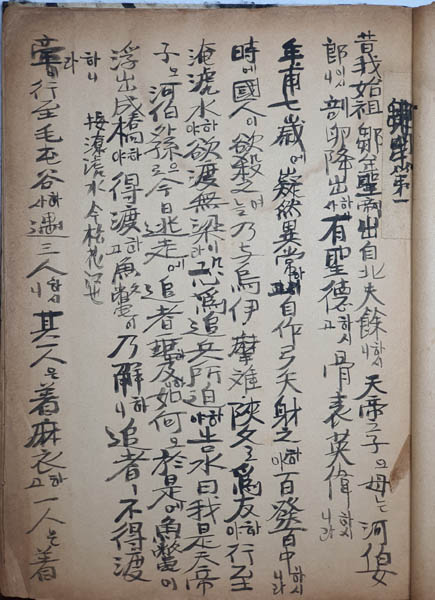 第一
昔我始祖鄒牟聖帝出自北夫餘하시니天帝之子오母는河伯女
郎이시니剖卵降出하사有聖德하시고骨表英偉하시니라
年甫七歲에嶷然異常하사自作弓矢射之하야百發百中하시니라
時에國人이欲殺之乃与烏伊摩離陜父로爲友하야行至
淹淲水하야欲渡無梁이라恐爲追兵所迫하야告水曰我是天帝
子오河伯外孫으로今日逃走에追者垂及하니如何오於是에魚鱉이
浮出成橋하야得渡하고魚鱉이乃解하니追者ㅣ不得渡
하니라 按淹淲水今松花江也
帝ㅣ行至毛屯谷하사遇三人하시니其一人은着麻衣하고一人은着